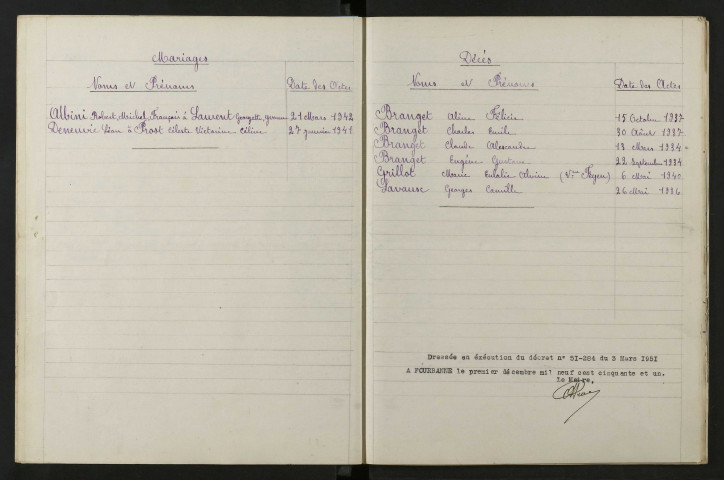 Mariages
Noms et Prénoms Date des Actes
Albini Robert Michel François à Laurent Georgette 21 Mars 1942
Deneuvre Léon à Prost Céleste Victorine Céline 27 janvier 1941
Décès
Noms et Prénoms Date des Actes
Branget Aline Félicie 15 Octobre 1937
Branget Charles Emile 30 Août 1937
Branget Claude Alexandre 18 Mars 1934
Branget Eugène Gustave 22 Septembre 1934
Grillot Marie Eulalie (Vve 6 Mai 1940
Georges Camille 26 Mai 1936
Dressée en éxécution du décret n° 51-284 du 3 Mars 1951
A FOURBANNE le premier décembre mil neuf cent cinquante et un.
Le Maire,